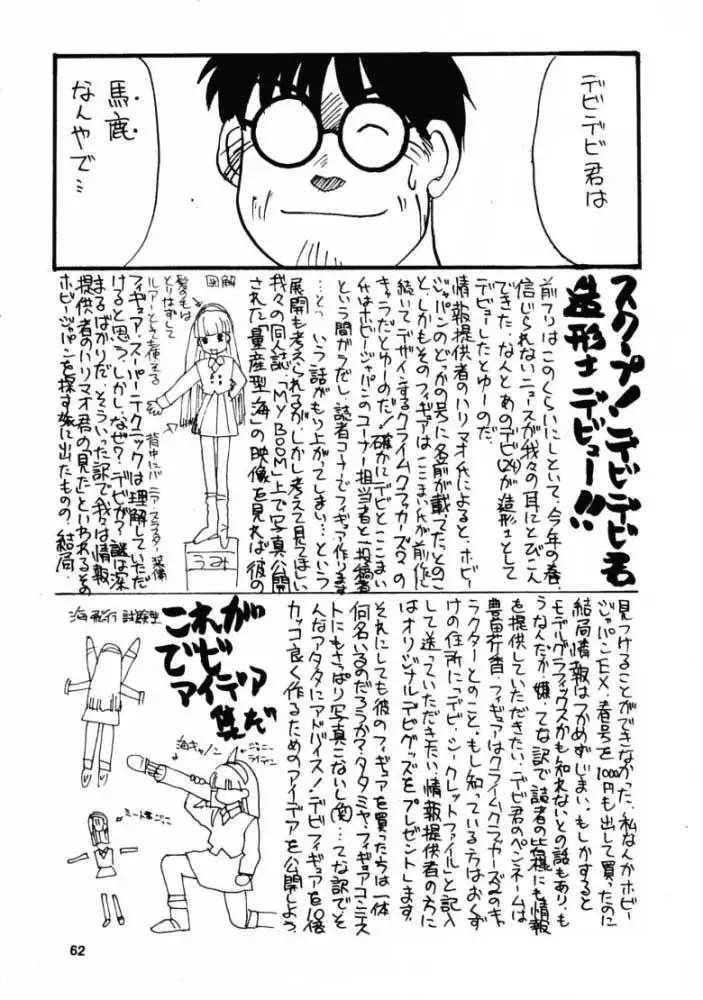 デビデビ君は
馬鹿
なんやで…
スクープ!デビデビ君
造形士デビュー!!
前フリはこのくらいにしといて、今年の春、
信じられないニュースが我々の耳にとびこん
できた‥なんとあのデビ(24)が造形士として
デビューしたとゆーのだ。
情報提供者のハリマオ氏によると、ホビー
ジャパンのどっかの号に名前が載ってたとのこ
と、しかもそのフィギュアは、ここまい氏が前作に
続いてデザインするクライムクラッカーズ2の
キャラだとゆーのだ!確かにデビとここまい
氏はホビージャパンのコーナー担当者と投稿者
という間ガラだし、読者コーナーで上フィギュア作ります
…とう、いう話がもり上がってしまい…という
展開も考えられるが、しかし考えて見てほしい
我々の同人誌「MY BOOM」上で写真公開
された「量産型海」の映像を見れば、彼の
図解
髪の毛は
とりはずして
ルアーとしても使える
背中にバーニアスラスター装備
うみ
フィギュア・スーパーテクニックは理解していただ
けると思う。しかし、なぜ?デビが?謎は深
まるばかりだ。そういった訳で我々は情報
提供者のハリマオ君の「見た」といわれるその
ホビージャパンを探す旅に出たものの、結局
見つけることができなかった、私なんかホビー
ジャパンEX春号を1000円も出して買ったのに
結局情報はつかめずじまい、もしかすると
モデルグラフィックスかも知れないとの話もあり、も
うなんだか嫌、てな訳で読者の皆様にも情報
を提供していただきたい、デビ君のペンネームは
豊田芹香、フィギュアはクライムクラッカーズ2のキャ
ラクターとのこと、もし知っている方はおくず
けの住所に「デビ・シークレットファイル」と記入
して送っていただきたい、情報提供者の方に
はオリジナルデビグッズをプレゼントします。
それにしても彼のフィギュアを買った方は一体
何名いるのだろうか?タタミヤ・フィギュアコンテス
トにもさっぱり写真こないし(笑)…てな訳でそ
んなアナタにアドバイス!デビフィギュアを10倍
カッコ良く作るためのアイデアを公開しよう。
これが
デビ
アイデア
集だ
海飛行試験型
海キャノン
ミート君ごっこ
62